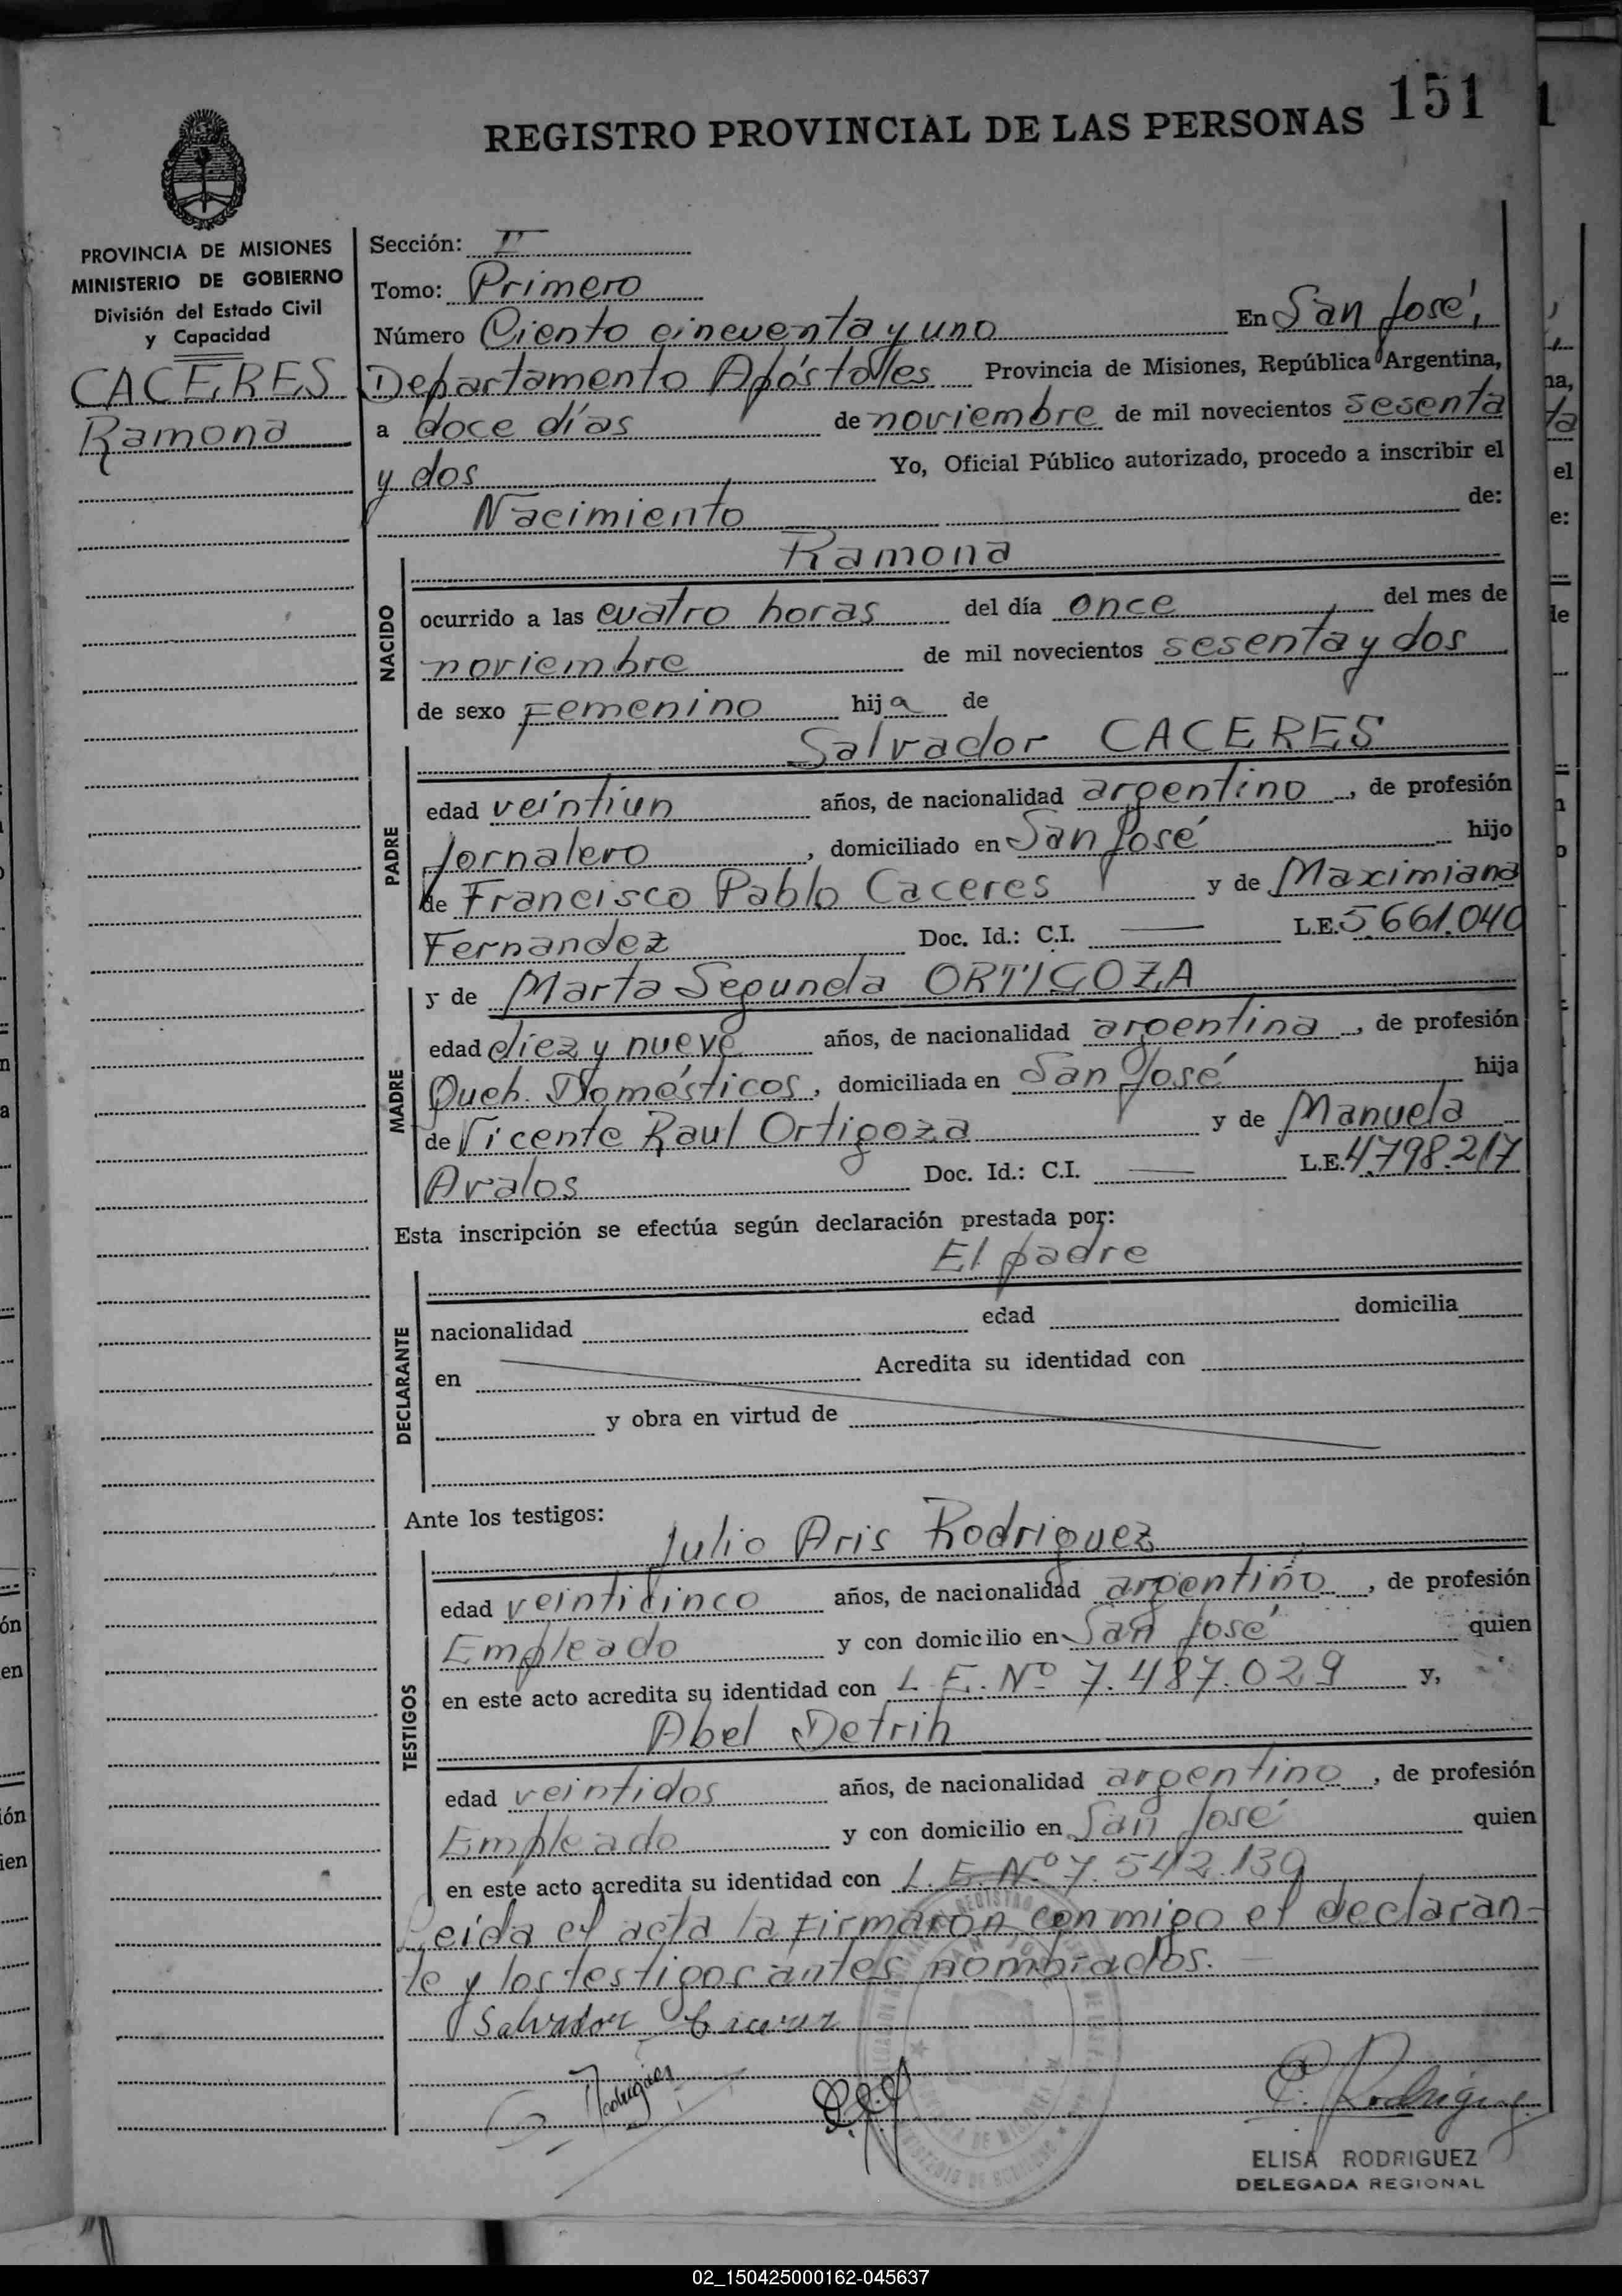 151
REGISTRO PROVINCIAL DE LAS PERSONAS
PROVINCIA DE MISIONES
MINISTERIO DE GOBIERNO
División del Estado Civil
y Capacidad
CACERES
Ramona
Sección: II
Tomo: Primero
Número Ciento cincuenta y uno En San José,
Departamento Apóstoles Provincia de Misiones, República Argentina,
a doce días de noviembre de mil novecientos sesenta
y dos Yo, Oficial Público autorizado, procedo a inscribir el
Nacimiento de:
NACIDO
Ramona
ocurrido a las cuatro horas del día once del mes de
noviembre de mil novecientos sesenta y dos
de sexo Femenino hija de
PADRE
Salvador CACERES
edad veintiun años, de nacionalidad argentino, de profesión
Jornalero, domiciliado en San José hijo
de Francisco Pablo Caceres y de Maximiana
Fernandez Doc. Id.: C.I. — L.E. 5.661.040
MADRE
y de Marta Segunda ORTIGOZA
edad diez y nueve años, de nacionalidad argentina, de profesión
Queh. Domésticos, domiciliada en San José hija
de Vicente Raul Ortigoza y de Manuela
Avalos Doc. Id.: C.I. — L.E. 4.798.217
Esta inscripción se efectúa según declaración prestada por:
El padre
DECLARANTE
nacionalidad edad domicilia
en Acredita su identidad con
y obra en virtud de
Ante los testigos:
TESTIGOS
Julio Aris Rodriguez
edad veinticinco años, de nacionalidad argentino, de profesión
Empleado y con domicilio en San José quien
en este acto acredita su identidad con L.E. Nº 7.487.029 y,
Abel Detrih
edad veintidos años, de nacionalidad argentino, de profesión
Empleado y con domicilio en San José quien
en este acto acredita su identidad con L.E. Nº 7.542.139
Leida el acta la firmaron conmigo el declaran-
te y los testigos antes nombrados.
Salvador Caceres
Rodriguez
E. Rodriguez
ELISA RODRIGUEZ
DELEGADA REGIONAL
02_150425000162-045637